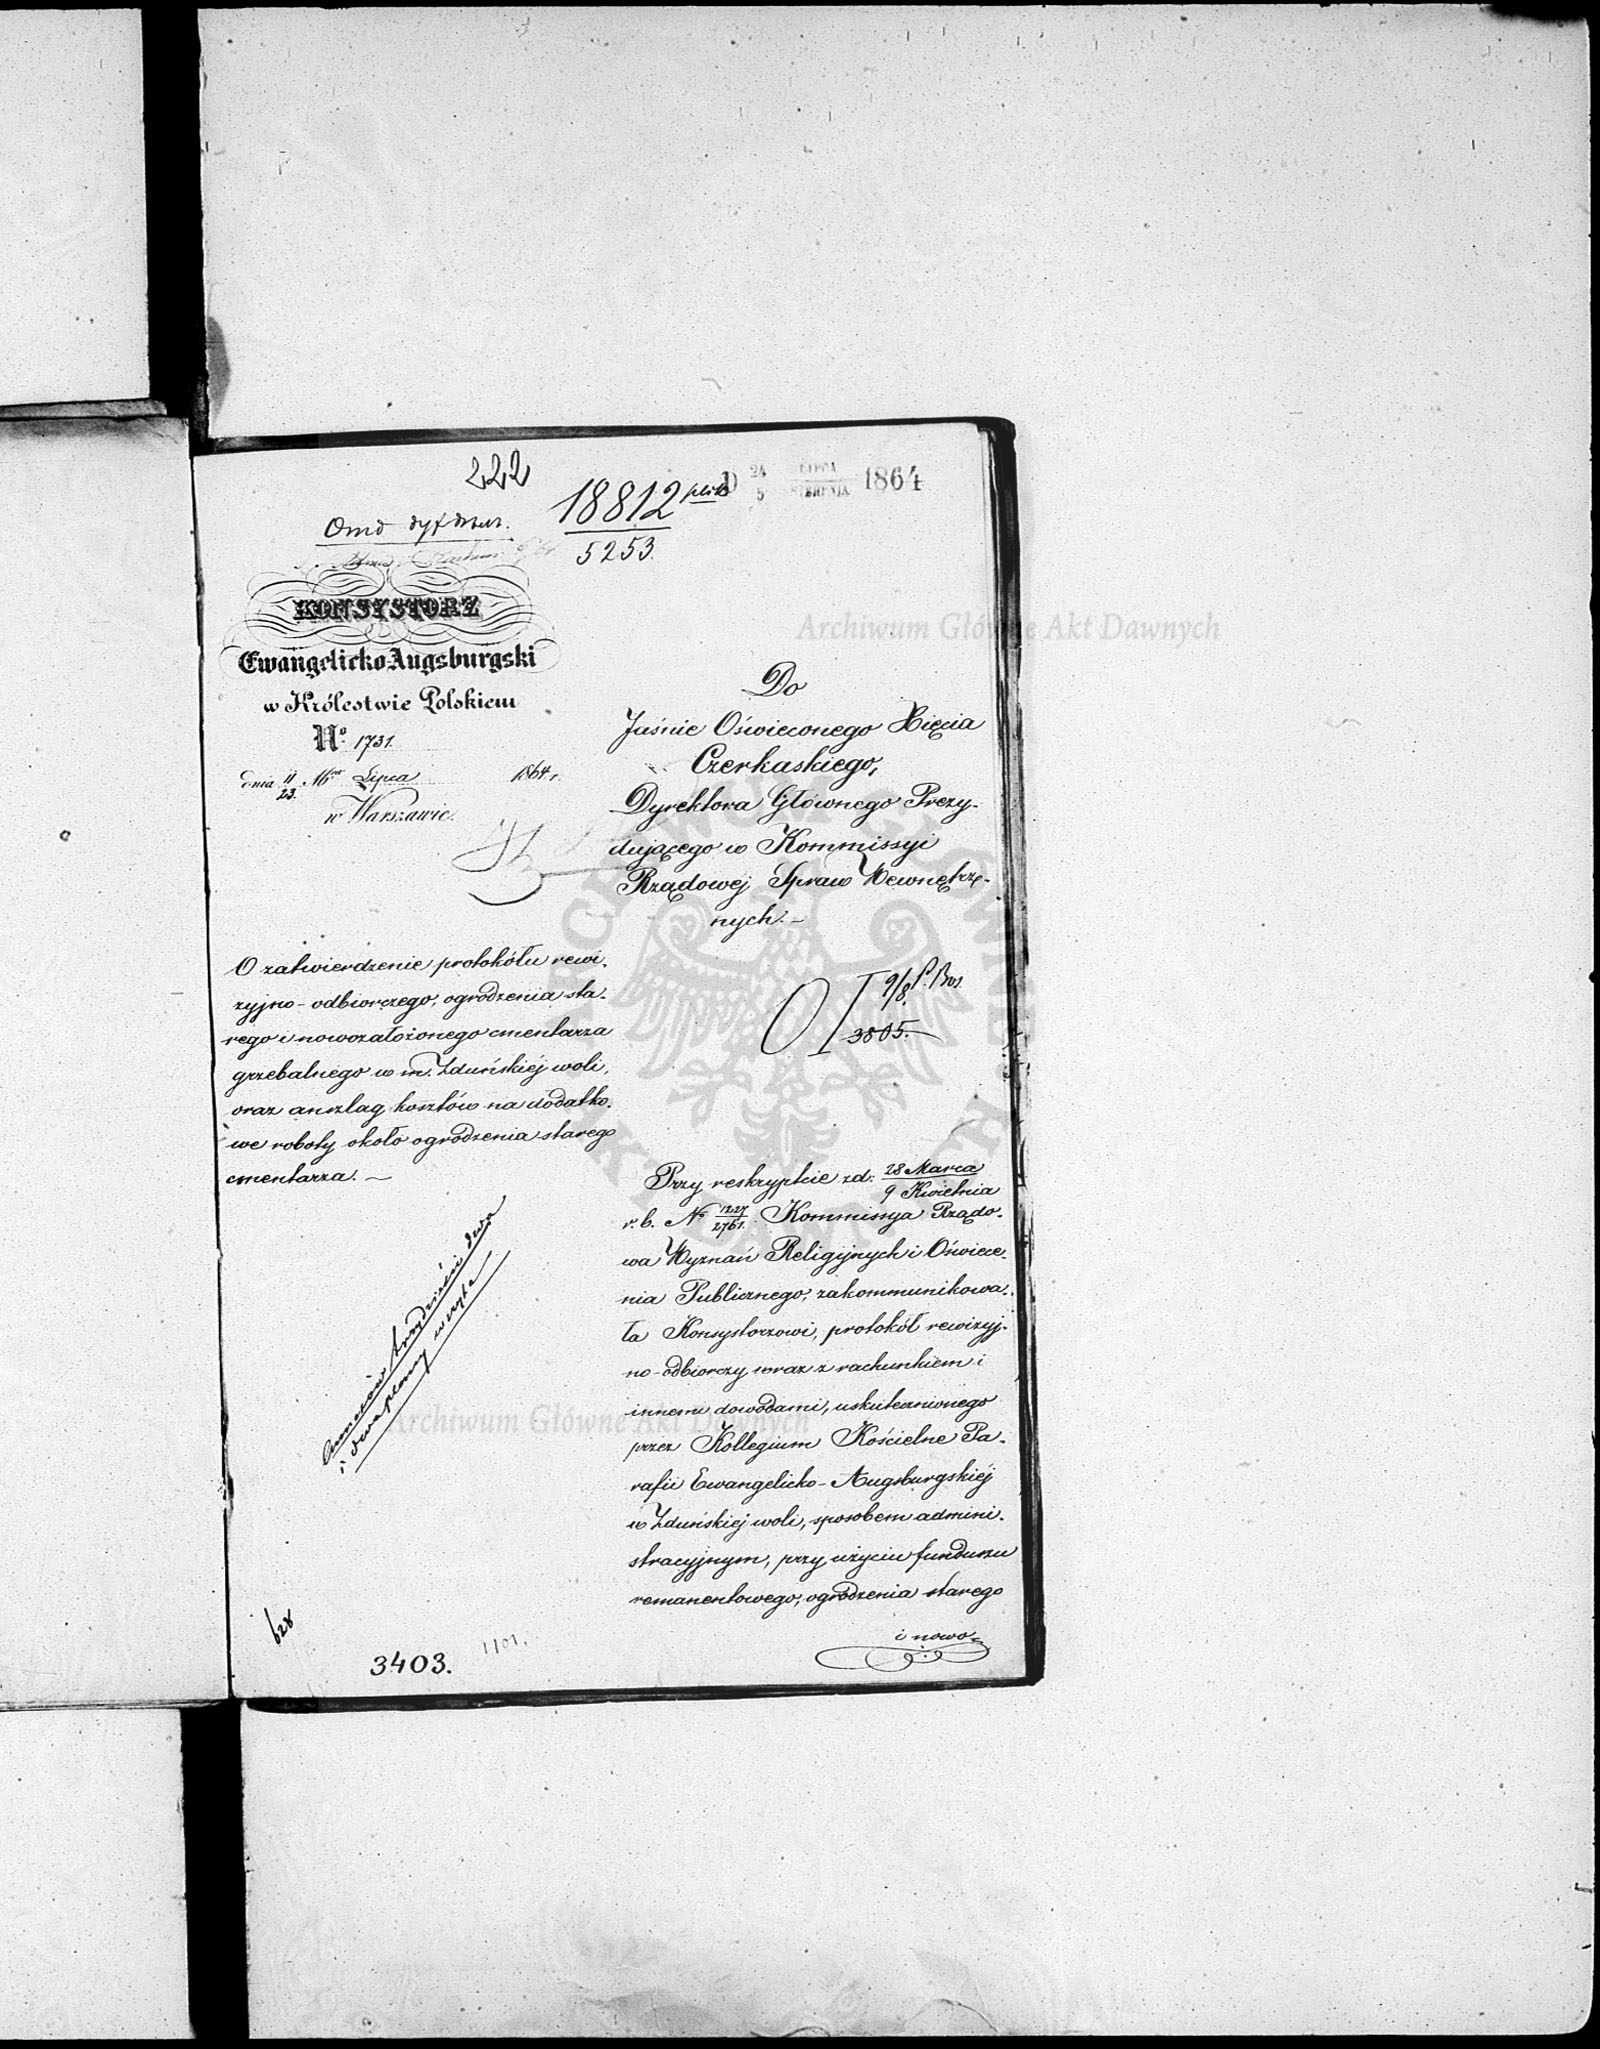 222
18812
5253.
D 24 LIPCA 1864
5 SIERPNIA
KONSYSTORZ
Ewangelicko-Augsburgski
w Królestwie Polskiem
No. 1731.
dnia 11/23 Mca Lipca 1864 r.
w Warszawie.
Do
Jaśnie Oświeconego Xięcia
Czerkaskiego,
Dyrektora Głównego Prezy-
dującego w Kommissyi
Rządowej Spraw Wewnętrz-
nych. –
O zatwierdzenie protokółu rewi-
zyjno-odbiorczego, ogrodzenia sta-
rego i nowozałożonego cmentarza
grzebalnego w m. Zduńskiéj woli,
oraz anszlag kosztów na dodatko-
we roboty około ogrodzenia starego
cmentarza. –
9/8
3805.
Przy reskrypcie z d: 28 Marca / 9 Kwietnia
r. b. No 1227/2761. Kommissya Rządo-
wa Wyznań Religijnych i Oświece-
nia Publicznego, zakommunikowa-
ła Konsystorzowi, protokół rewizyj-
no-odbiorczy wraz z rachunkiem i
innemi dowodami, uskutecznionego
przez Kollegium Kościelne Pa-
rafii Ewangelicko-Augsburgskiéj
w Zduńskiej woli, sposobem admini-
stracyjnym, przy użyciu funduszu
remanentowego, ogrodzenia starego
i nowo-
Annexów trzydzieści dwa
i dwa plany w szycie
628
3403.
1101.
Archiwum Główne Akt Dawnych
Archiwum Główne Akt Dawnych